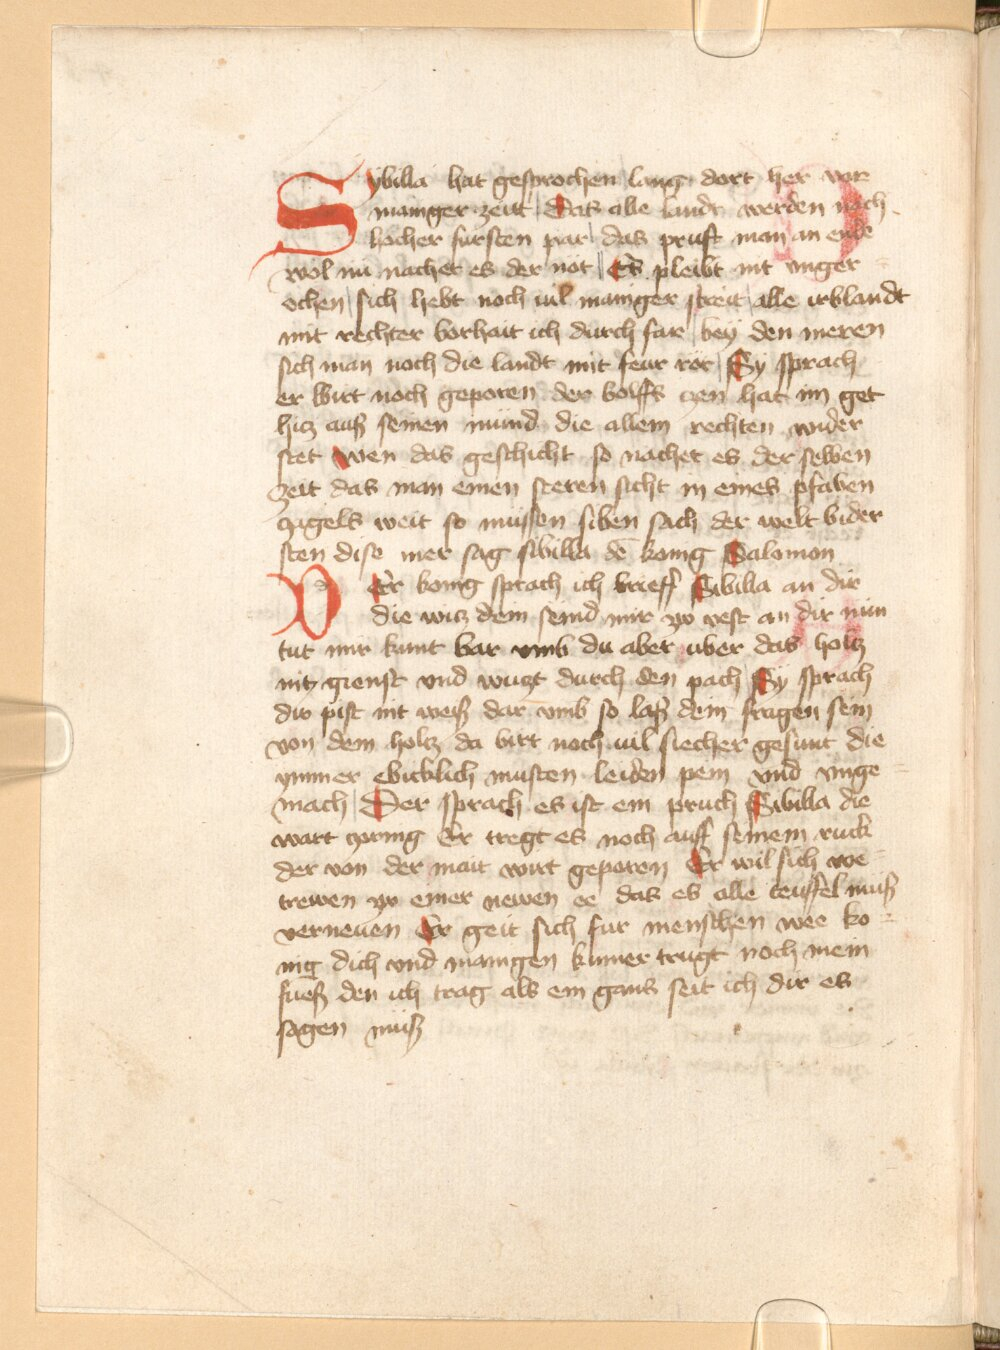 Sybilla hat gesprochen lang dort her vor
maniger zeitt Das alle landt werden noch
hocher fursten par das pruft man an ende
wol nu nachet es der not Es pleibt nit vnger
ochen sich hebt noch vil maniger streit alle irklandt
mit rechter vorhait ich durch far bey den meren
sich man noch die landt mit feur rot Sy sprach
er wirt noch geporen der volffs zen hat im get
hicz auß seinen mund die allem rechten wider
stet wen das geschicht so nachet es der selben
zeit das man einen steren sicht in eines pfaben
zagels weit so mussen siben sach der welt vider
sten dise mer sag sibilla dē konig Salomon
Der konig sprach ich brieff Sibilla an dir
die wicz dein seind mir zw vest an dir nun
tut mir kunt bar vmb du aber uber das holcz
nit gienst vnd wuzt durch den pach Sy sprach
dw pist nit weiß dar vmb so laß dein fragen sein
von dem holcz da virt noch vil siecher gesunt die
ymmer ebicklich musten leiden pein vnd vnge
mach Der sprach es ist ein pruch Sibilla die
wart zornig Er tregt es noch auff seinem ruck
der von der mait wirt geporen Er wil sich we
trewen zw einer newen ee das es alle teuffel muß
verneuen Er geit sich fur menschen wee ko
nig dich vnd manigen kumer trugt noch mein
fueß den ich trag als ein gans seit ich dir es
sagen muß